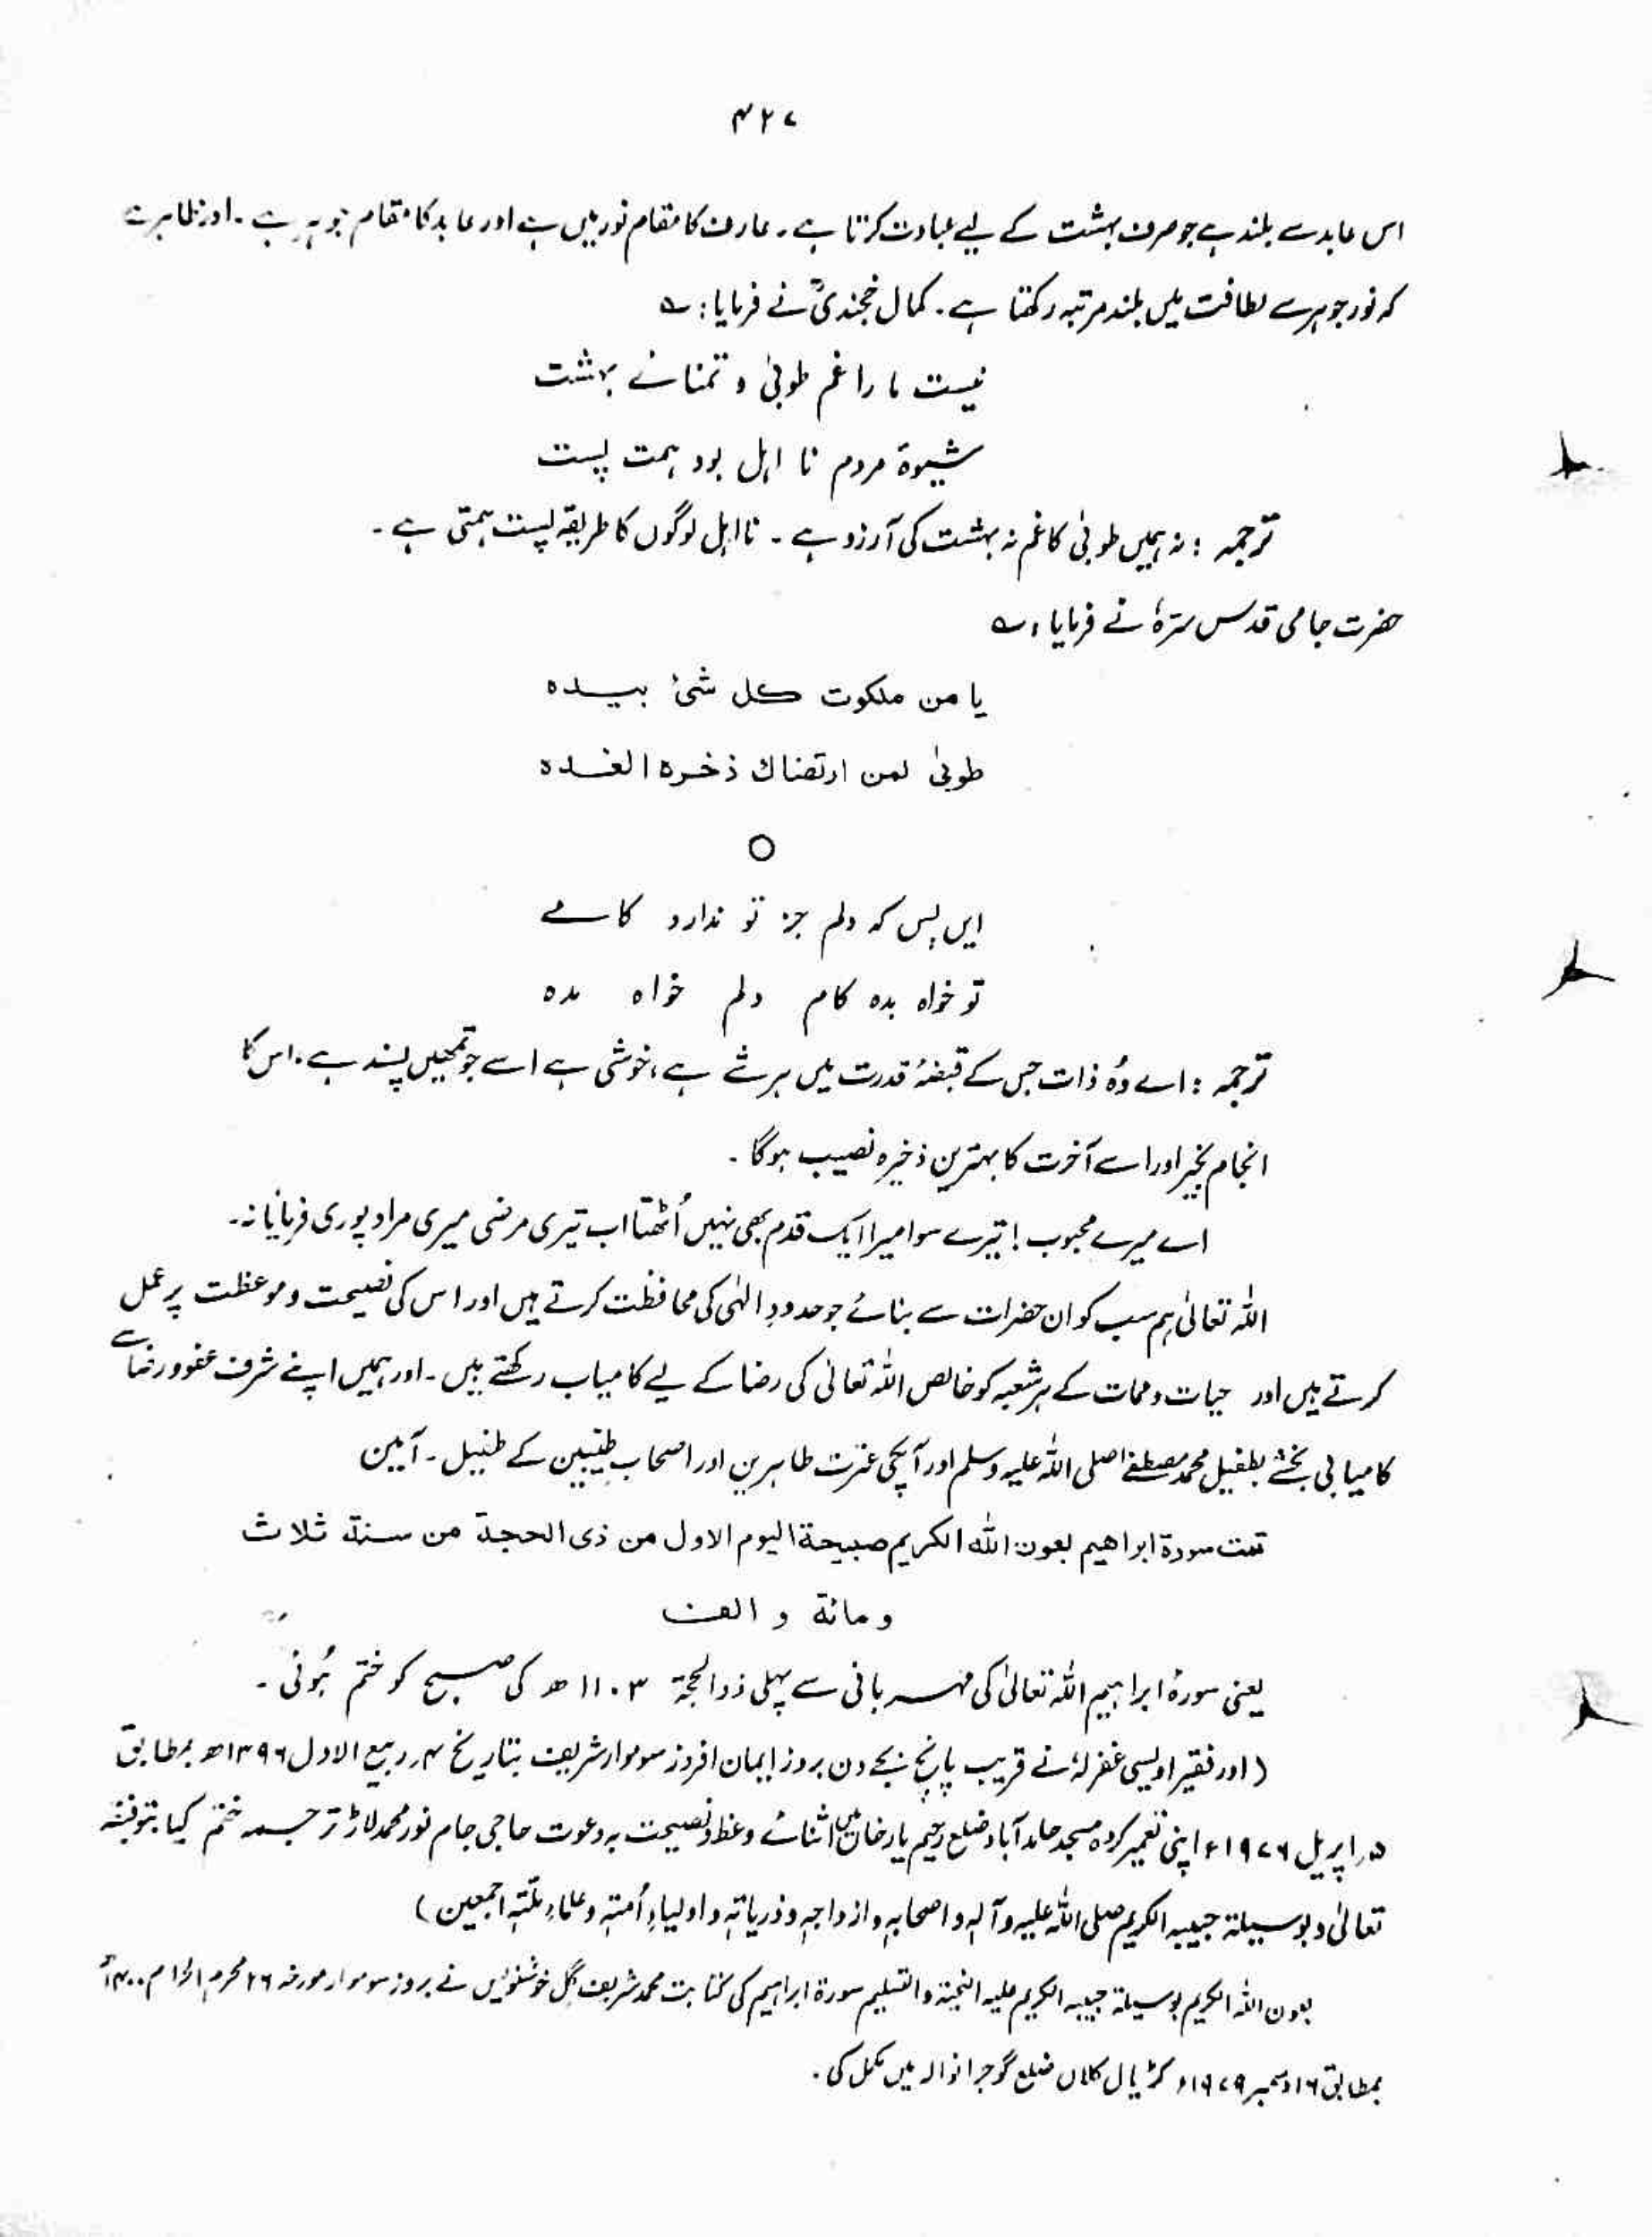 ۴۲۷
اس عابد سے بلند ہے جو صرف بہشت کے لیے عبادت کرتا ہے۔ عارف کا مقام نور میں ہے اور عابد کا مقام جوہر ہے۔ اور ظاہر ہے
کہ نور جوہر سے لطافت میں بلند مرتبہ رکھتا ہے۔ کمال خجندیؒ نے فرمایا: ؎
نیست ما را غم طوبیٰ و تمنائے بہشت
شیوۂ مردم نا اہل بود ہمت پست
ترجمہ : نہ ہمیں طوبیٰ کا غم نہ بہشت کی آرزو ہے ۔ نااہل لوگوں کا طریقہ پست ہمتی ہے ۔
حضرت جامی قدس سرّہٗ نے فرمایا : ؎
یا من ملکوت کل شیٔ بیدہ
طوبیٰ لمن ارتضاك ذخرہ الغدہ
○
ایں بس کہ دلم جز تو ندارد کامے
تو خواہ بدہ کام دلم خواہ مدہ
ترجمہ : اے وُہ ذات جس کے قبضۂ قدرت میں ہر شے ہے ، خوشی ہے اسے جو تمھیں پسند ہے ، اس کا
انجام بخیر اور اسے آخرت کا بہترین ذخیرہ نصیب ہوگا ۔
اے میرے محبوب ! تیرے سوا میرا ایک قدم بھی نہیں اُٹھتا اب تیری مرضی میری مراد پوری فرمایا نہ ۔
اللہ تعالیٰ ہم سب کو ان حضرات سے بنائے جو حدودِ الٰہی کی محافظت کرتے ہیں اور اس کی نصیحت و موعظت پر عمل
کرتے ہیں اور حیات و ممات کے ہر شعبہ کو خالص اللہ تعالیٰ کی رضا کے لیے کامیاب رکھتے ہیں ۔ اور ہمیں اپنے شرف عفو و رضا سے
کامیابی بخشے بطفیل محمد مصطفےٰ صلی اللہ علیہ وسلم اور آپکی عترت طاہرین اور اصحاب طیّبین کے طفیل ۔ آمین
تمت سورة ابراهيم بعون اللہ الکریم صبيحة اليوم الاول من ذی الحجة من سنة ثلاث
و مائة و الف
یعنی سورۂ ابراہیم اللہ تعالیٰ کی مہربانی سے پہلی ذوالحجۃ ۱۱۰۳ ھ کی صبح کو ختم ہُوئی ۔
( اور فقیر اویسی غفرلہٗ نے قریب پانچ بجے دن بروز ایمان افروز سوموار شریف بتاریخ ۴ ر ربیع الاول ۱۳۹۶ھ بمطابق
۵ ر اپریل ۱۹۷۶ء اپنی تعمیر کردہ مسجد حامد آباد ضلع رحیم یار خان میں اثنائے وعظ و نصیحت بہ دعوت حاجی جام نور محمد لاڑ ترجمہ ختم کیا بتوفیقہٖ
تعالیٰ و بوسیلۃ حبیبہ الکریم صلی اللہ علیہ و آلہٖ و اصحابہٖ و ازواجہٖ و ذریاتہٖ و اولیاءِ اُمتہٖ و علماءِ ملّتہٖ اجمعین )
بعون اللہ الکریم بوسیلۃ حبیبہ الکریم علیہ التحیۃ والتسلیم سورۃ ابراہیم کی کتابت محمد شریف گل خوشنویس نے بروز سوموار مورخہ ۲۶ محرم الحرام ۱۴۰۰ھ
بمطابق ۱۶ دسمبر ۱۹۷۹ء کڑیال کلاں ضلع گوجرانوالہ میں مکمل کی ۔